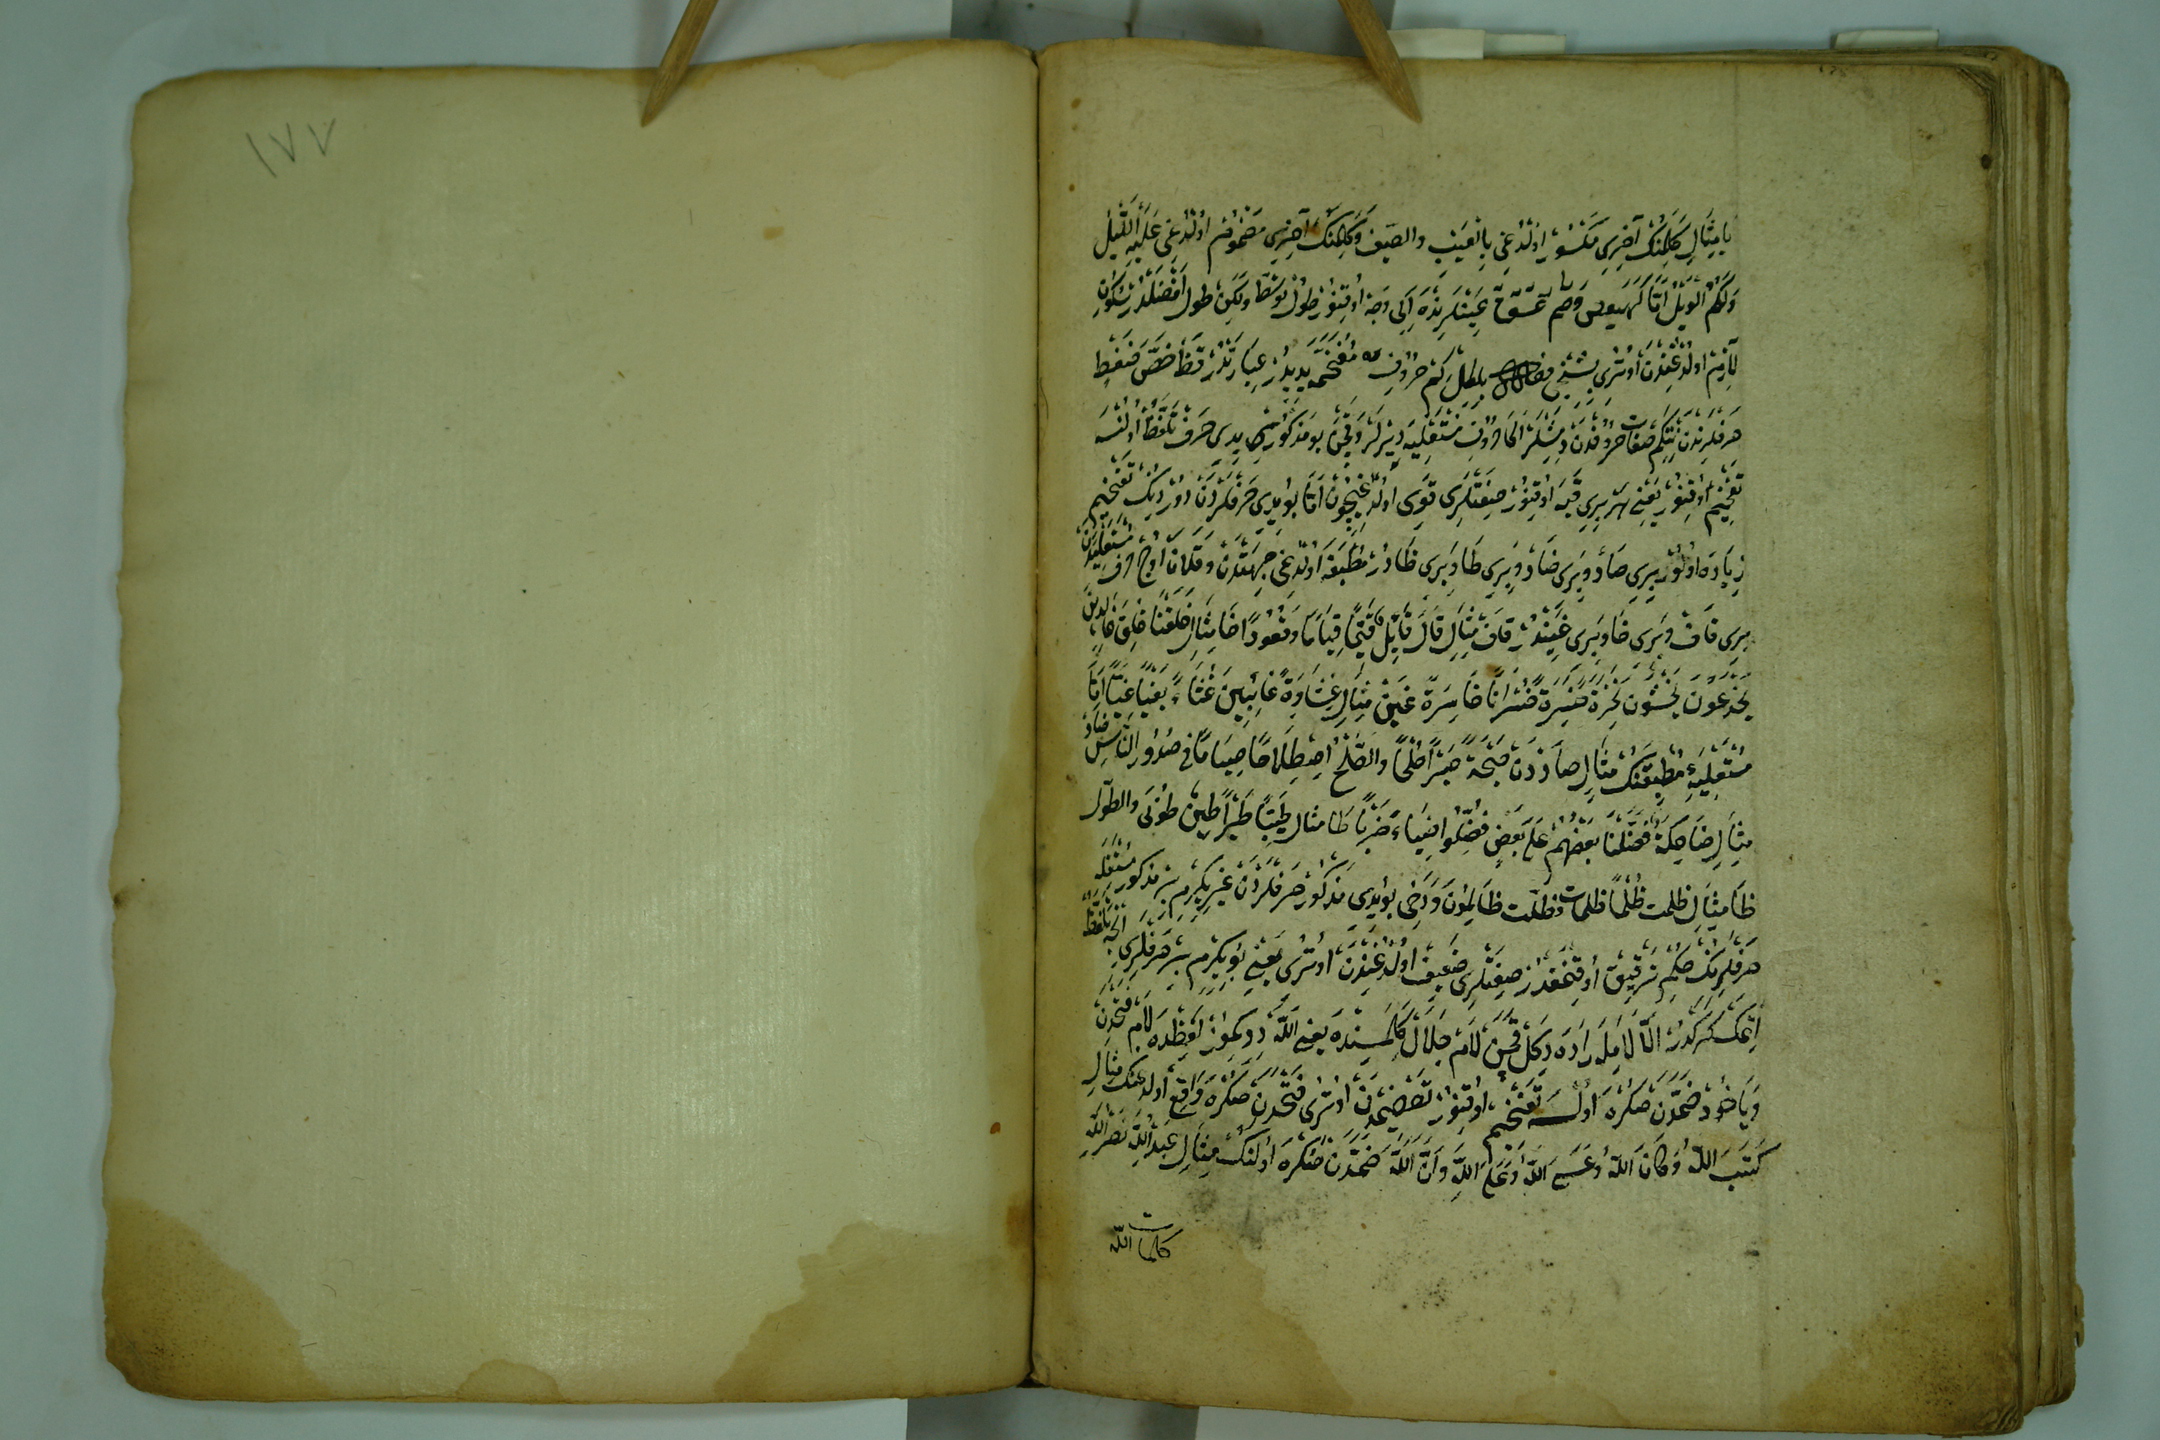 ١٧٧
يا مثال كلمنك آخرى مكسور اولدغى بالغيب والصيف وكلمنك آخرى مضموم اولدغى عليه القيل
ولكم الويل اما كهيعص وحم عسق عينلرنده ايكى وجه اوقنور طول توسط وليكن طول افضلدر سكون
لازم اولدغندن اوترى بشنجى فصل بلكل كم حروف مفخمه يديدر عبارتدر قظ خص ضغط
حرفلرندن نتكم صفات حروفدن دمشلر اكا حروف مستعليه ديرلر وقچن بو مذكور يدى حرف تلفظ اولنسه
تفخيم اوقنور يعنى هر برى قبه اوقنور صفتلرى قوى اولدغيچون اما بو يدى حرفلردن دوردينك تفخيم
زياده اولور برى صاد وبرى ضاد وبرى طا وبرى ظادر مطبقه اولدغى جهتدن وقلانا اوچ حرف مستعليه دن
برى قاف وبرى خا وبرى غيندر قاف مثال قال قايل قيما قياما وقعودا خا مثال خلقنا خلق خالدين
يخدعون يخشون نخرة خسرة خسرانا خاسرة غين مثال غشاوة غائبين غثاء بغيا غيا اما
مستعليه مطبقنك مثال صاددن صيحة صبرا صلحا والصلح اصطلاحا صياما فى صدور الناس ضاد
مثال ضاحكة فضلنا بعضهم على بعض فضلوا ضياء ضربا طا مثال طيبا طيرا طين طوبى والطول
ظا مثال ظلمت ظلما ظلمات وظلت ظالمون وداخى بو يدى مذكور حرفلردن غير يكرم بر مذكور مستفله
حرفلرينك حكم ترقيق اوقنمقدر صفتلرى ضعيف اولدغندن اوترى يعنى بو يكرم بر حرفلرى انجه تلفظ
اتمك كركدر الا لامله راده دكل قچن لام جلال كلمسنده يعنى الله ديدكمز لفظده لام فتحدن
وياخود ضمدن صكره اولسه تفخيم اوقنور تعظيمدن اوترى فتحدن صكره واقع اولدغنك مثال
كتب الله وكان الله وعسى الله وعلى الله وان الله ضمدن صكره اولنك مثال عبد الله نصر الله
كلمات الله